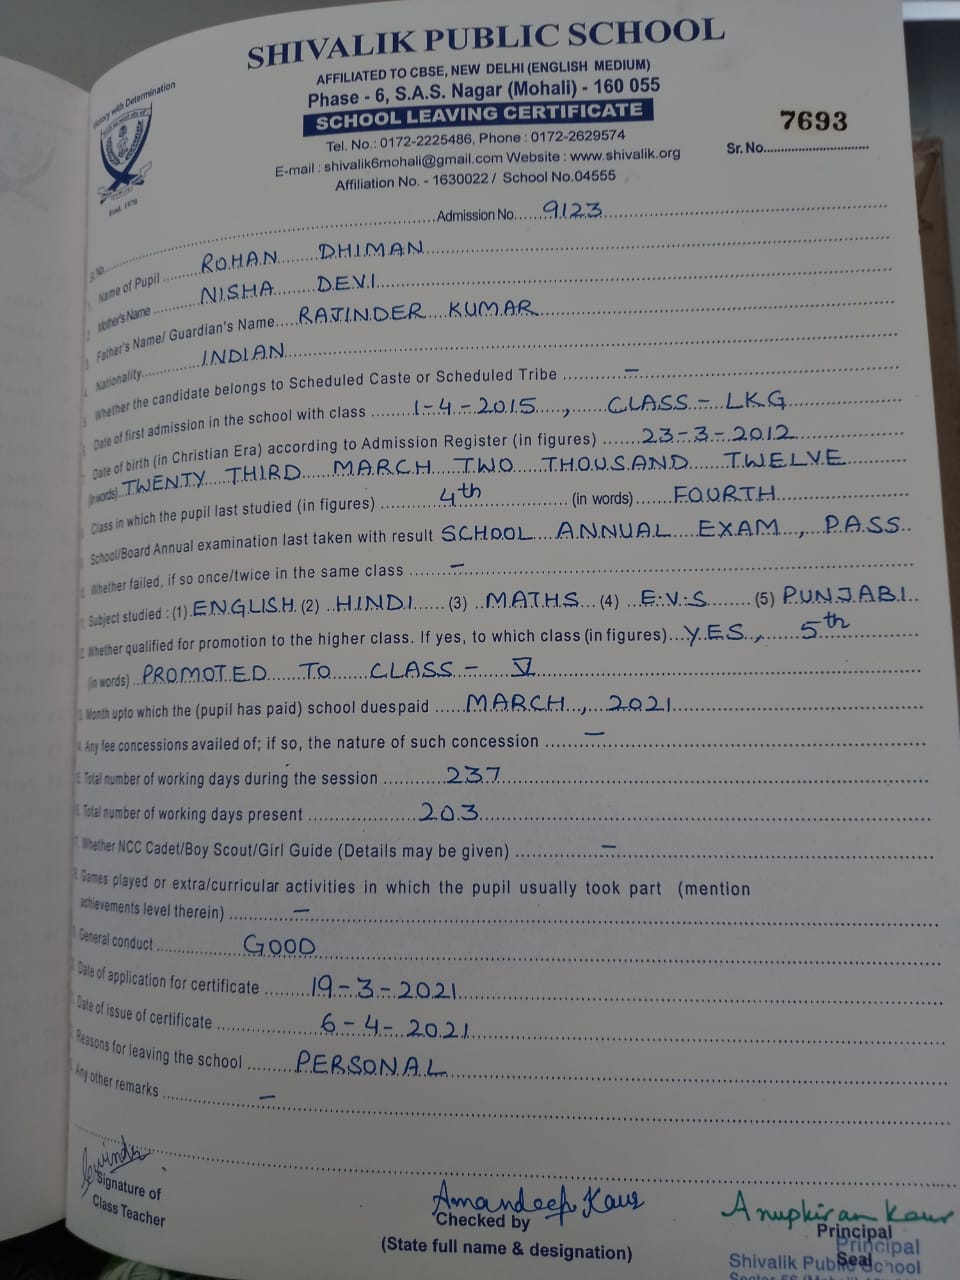 SHIVALIK PUBLIC SCHOOL
AFFILIATED TO CBSE, NEW DELHI (ENGLISH MEDIUM)
Phase - 6, S.A.S. Nagar (Mohali) - 160 055
SCHOOL LEAVING CERTIFICATE
Victory with Determination
Estd. 1976
7693
Sr. No.
Tel. No.: 0172-2225486, Phone : 0172-2629574
E-mail : shivalik6mohali@gmail.com Website : www.shivalik.org
Affiliation No. - 1630022 / School No.04555
Sr.No. Admission No. 9123
Name of Pupil ROHAN DHIMAN
Mother's Name NISHA DEVI
Father's Name/ Guardian's Name RAJINDER KUMAR
Nationality INDIAN
Whether the candidate belongs to Scheduled Caste or Scheduled Tribe –
Date of first admission in the school with class 1-4-2015, CLASS - LKG
Date of birth (in Christian Era) according to Admission Register (in figures) 23-3-2012
(in words) TWENTY THIRD MARCH TWO THOUSAND TWELVE
Class in which the pupil last studied (in figures) 4th (in words) FOURTH
School/Board Annual examination last taken with result SCHOOL ANNUAL EXAM, PASS
Whether failed, if so once/twice in the same class –
Subject studied : (1) ENGLISH (2) HINDI (3) MATHS (4) E.V.S (5) PUNJABI
Whether qualified for promotion to the higher class. If yes, to which class (in figures) YES, 5th
(in words) PROMOTED TO CLASS - V
Month upto which the (pupil has paid) school duespaid MARCH, 2021
Any fee concessions availed of; if so, the nature of such concession –
Total number of working days during the session 237
Total number of working days present 203
Whether NCC Cadet/Boy Scout/Girl Guide (Details may be given) –
Games played or extra/curricular activities in which the pupil usually took part (mention
achievements level therein) –
General conduct GOOD
Date of application for certificate 19-3-2021
Date of issue of certificate 6-4-2021
Reasons for leaving the school PERSONAL
Any other remarks –
Signature of
Class Teacher
Amandeep Kaur
Checked by
(State full name & designation)
Anupkiran Kaur
Principal
Seal
Principal
Shivalik Public School